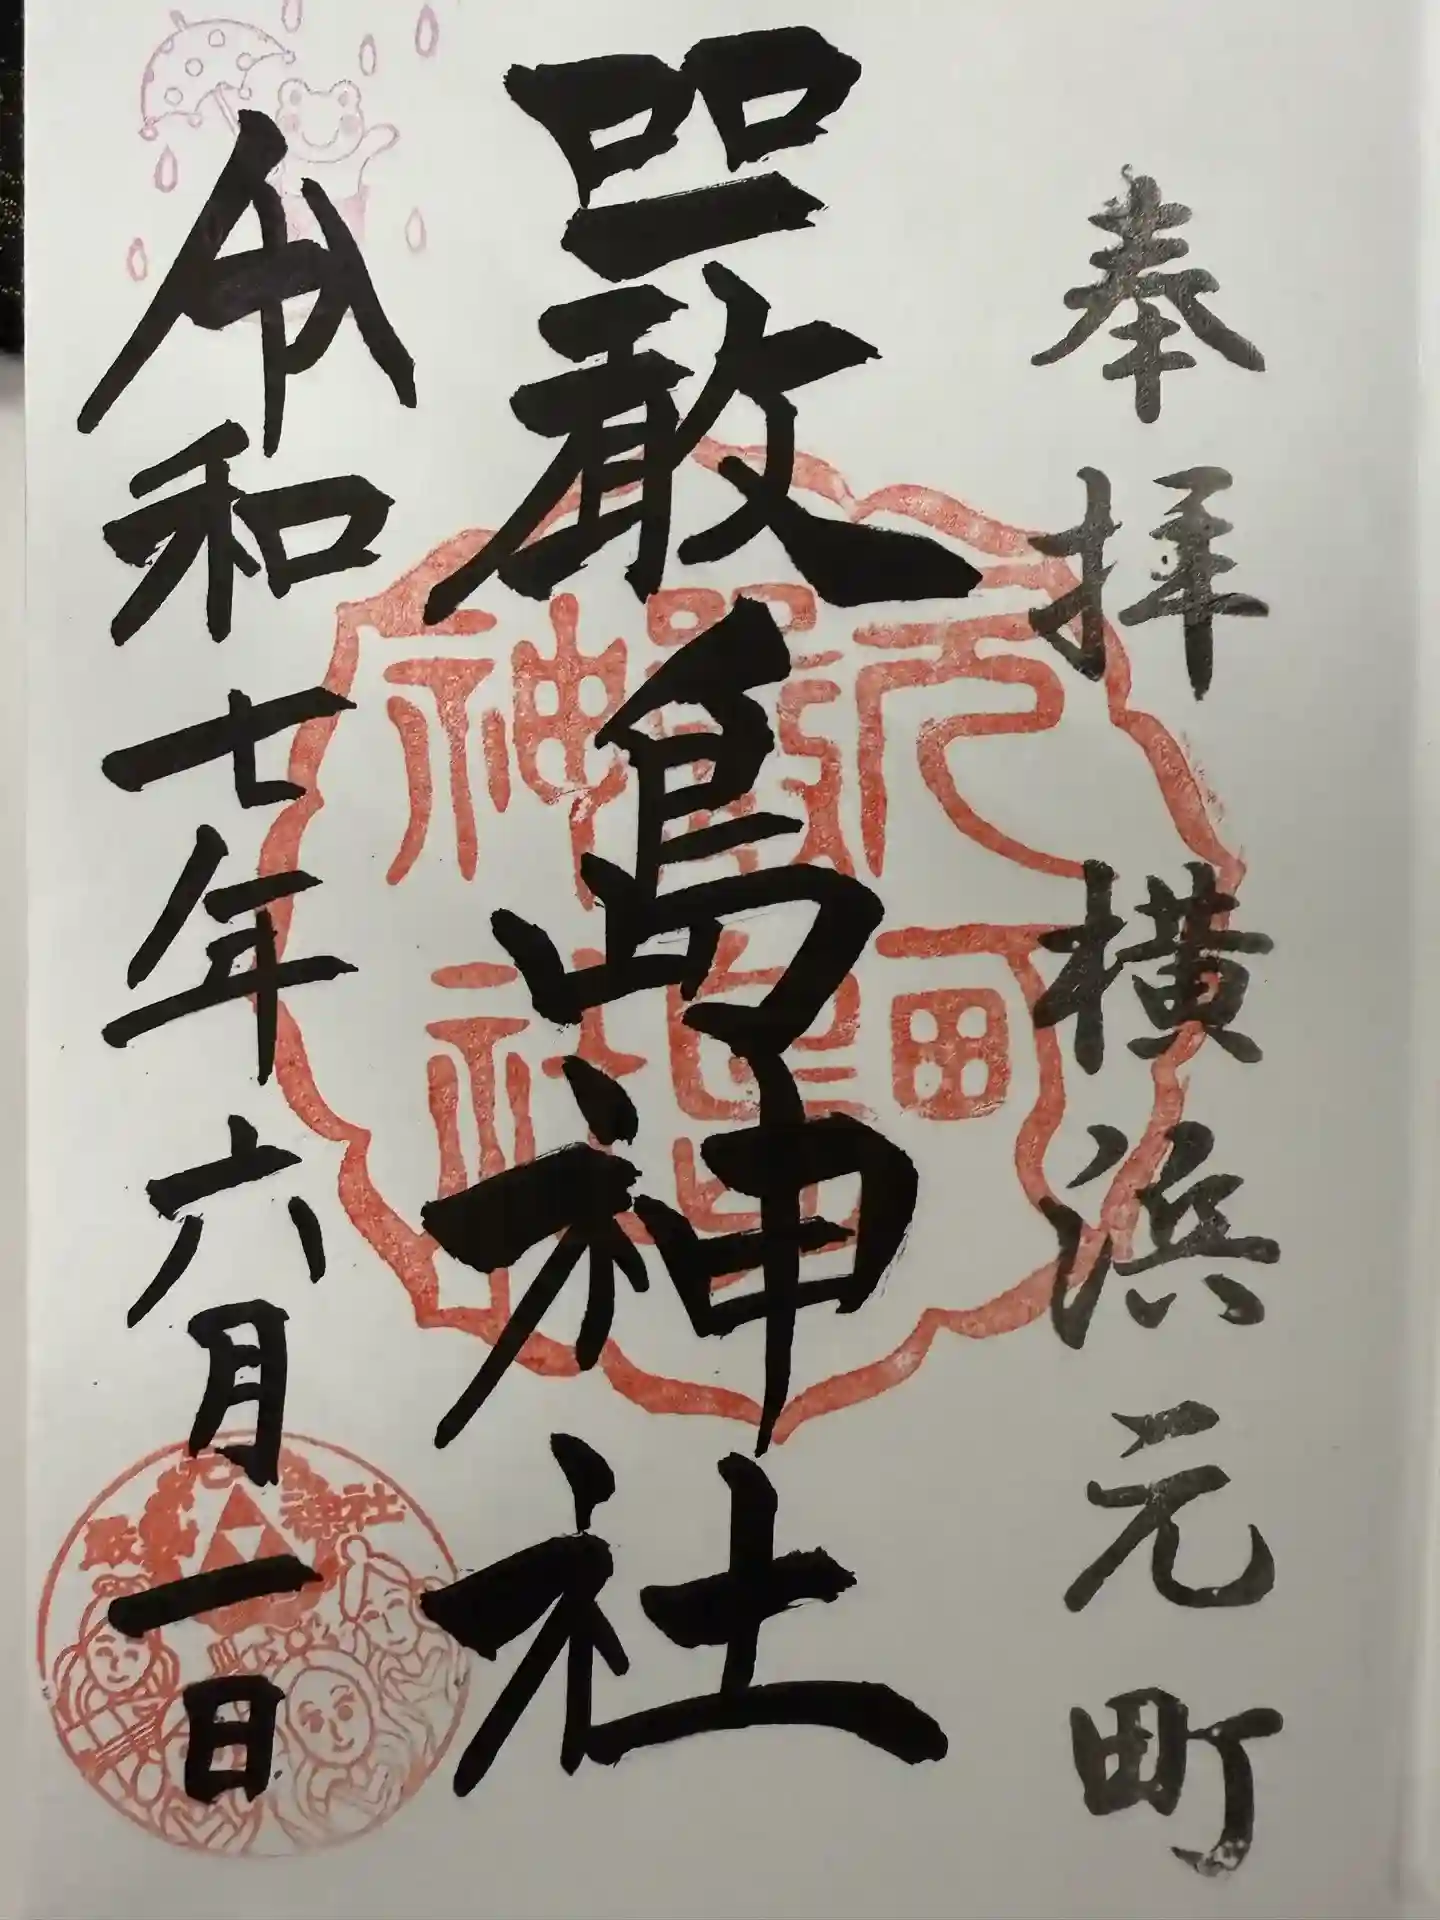 奉拝 横浜元町
厳島神社
令和七年六月一日
元町
厳島
神社
元町
厳島神社